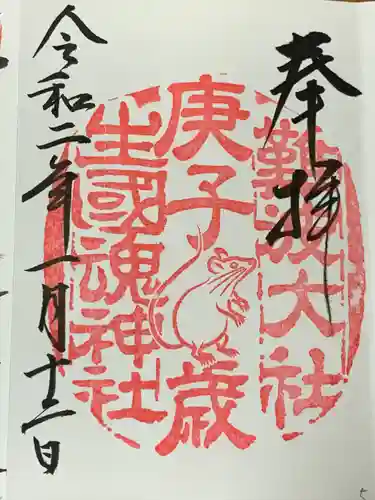 奉拝
難波大社
庚子歳
生國魂神社
令和二年一月十二日